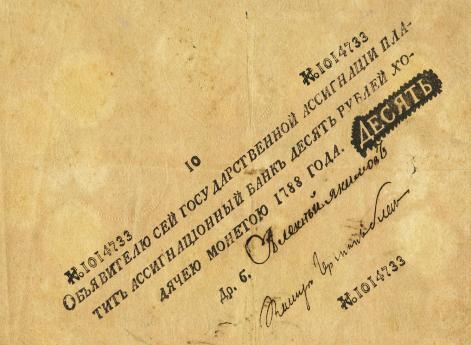 №1014733
10
ОБЪЯВИТЕЛЮ СЕЙ ГОСУДАРСТВЕННОЙ АССИГНАЦІИ ПЛА-
ТИТЪ АССИГНАЦІОННЫЙ БАНКЪ ДЕСЯТЬ РУБЛЕЙ ХО-
ДЯЧЕЮ МОНЕТОЮ 1788 ГОДА. ДЕСЯТЬ
№1014733
Др. б. Алексѣй Якимовъ
№1014733